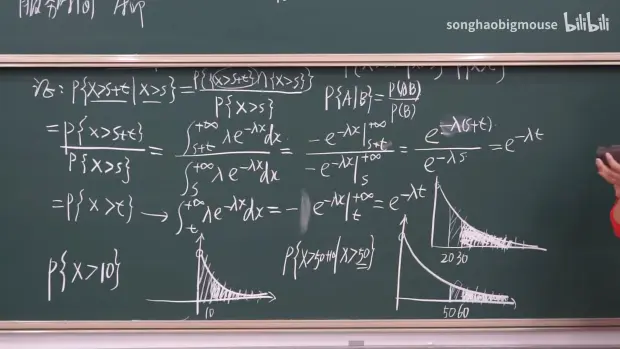 songhaobigmouse bilibili
服务时间
证: P{X>s+t|X>s} = P{(X>s+t)∩(X>s)} / P{X>s}
P{A|B} = P(AB) / P(B)
= P{X>s+t} / P{X>s} = ∫_{s+t}^{+∞} λe^{-λx}dx / ∫_{s}^{+∞} λe^{-λx}dx = -e^{-λx}|_{s+t}^{+∞} / -e^{-λx}|_{s}^{+∞} = e^{-λ(s+t)} / e^{-λs} = e^{-λt}
= P{X>t} → ∫_{t}^{+∞} λe^{-λx}dx = - e^{-λx}|_{t}^{+∞} = e^{-λt}
20 30
P{X>10}
10
P{X>50+10|X>50}
50 60